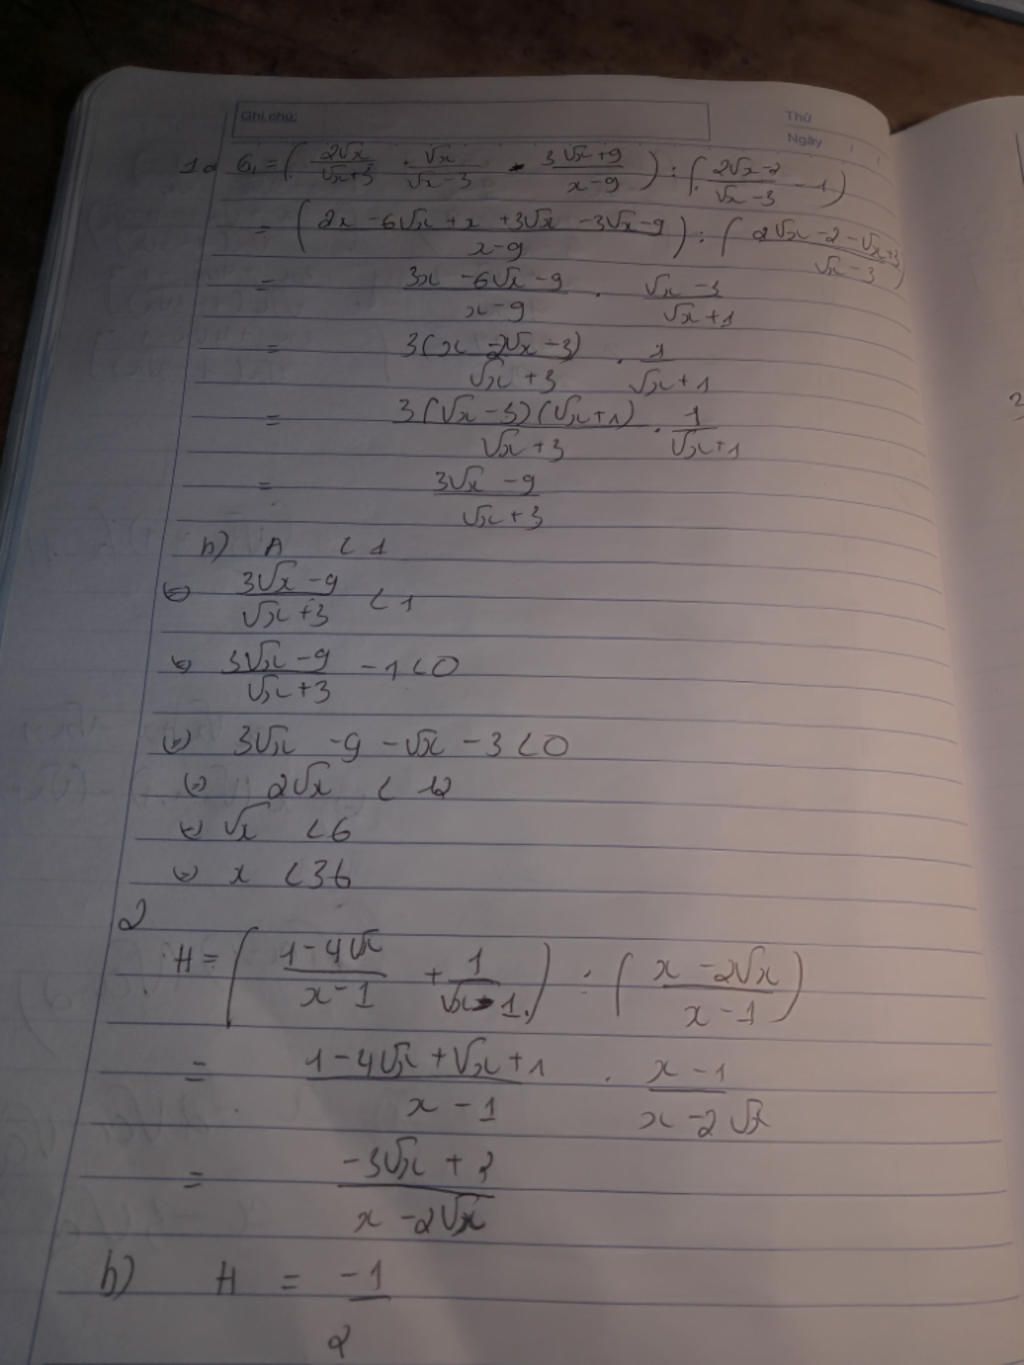 Ghi chú:
Thứ
Ngày
1a G = ( 2√x/(√x+3) + √x/(√x-3) - (3√x+9)/(x-9) ) : ( (2√x-2)/(√x-3) - 1 )
= ( (2x - 6√x + x + 3√x - 3√x - 9)/(x-9) ) : ( (2√x - 2 - √x + 3)/(√x - 3) )
= (3x - 6√x - 9)/(x-9) . (√x - 3)/(√x + 1)
= 3(x - 2√x - 3)/(√x + 3) . 1/(√x + 1)
= 3(√x - 3)(√x + 1)/(√x + 3) . 1/(√x + 1)
= (3√x - 9)/(√x + 3)
b) A < 1
⇔ (3√x - 9)/(√x + 3) < 1
⇔ (3√x - 9)/(√x + 3) - 1 < 0
⇔ 3√x - 9 - √x - 3 < 0
⇔ 2√x < 12
⇔ √x < 6
⇔ x < 36
2
H = ( (1 - 4√x)/(x - 1) + 1/(√x - 1) ) : ( (x - 2√x)/(x - 1) )
= (1 - 4√x + √x + 1)/(x - 1) . (x - 1)/(x - 2√x)
= (-3√x + 2)/(x - 2√x)
b) H = -1/2